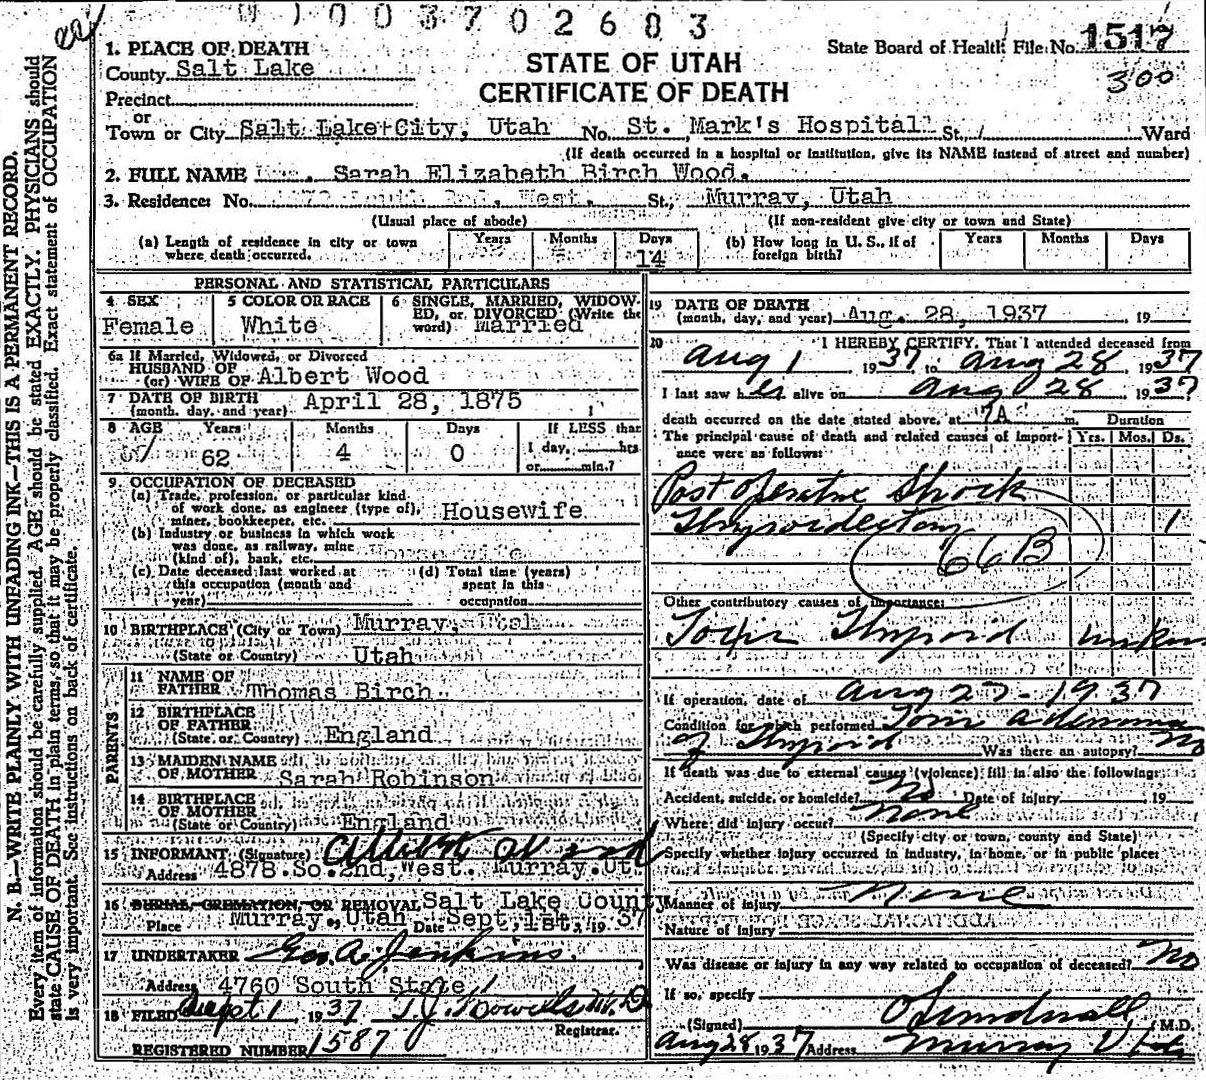 003702683
1. PLACE OF DEATH
County Salt Lake
STATE OF UTAH
CERTIFICATE OF DEATH
State Board of Health File No. 1517
300
Precinct
or
Town or City Salt Lake City, Utah No. St. Mark's Hospital St., Ward
(If death occurred in a hospital or institution, give its NAME instead of street and number)
2. FULL NAME Sarah Elizabeth Birch Wood.
3. Residence: No. West. St., Murray, Utah
(Usual place of abode) (If non-resident give city or town and State)
(a) Length of residence in city or town where death occurred. Years Months Days 14
(b) How long in U. S., if of foreign birth? Years Months Days
PERSONAL AND STATISTICAL PARTICULARS
4 SEX Female
5 COLOR OR RACE White
6 SINGLE, MARRIED, WIDOWED, or DIVORCED (Write the word) Married
6a If Married, Widowed, or Divorced
HUSBAND OF
(or) WIFE OF Albert Wood
7 DATE OF BIRTH
(month, day, and year) April 28, 1875
8 AGE Years 62 Months 4 Days 0 If LESS than 1 day, hrs or min.?
9 OCCUPATION OF DECEASED
(a) Trade, profession, or particular kind
of work done, as engineer (type of),
miner, bookkeeper, etc. Housewife
(b) Industry or business in which work
was done, as railway, mine
(kind of), bank, etc. Housewife
(c) Date deceased last worked at
this occupation (month and
year)
(d) Total time (years)
spent in this
occupation
10 BIRTHPLACE (City or Town) Murray, Utah
(State or Country) Utah
PARENTS
11 NAME OF
FATHER Thomas Birch
12 BIRTHPLACE
OF FATHER
(State or Country) England
13 MAIDEN NAME
OF MOTHER Sarah Robinson
14 BIRTHPLACE
OF MOTHER
(State or Country) England
15 INFORMANT (Signature) Albert Wood
Address 4878 So. 2nd, West. Murray, Ut.
16 BURIAL, CREMATION, OR REMOVAL Salt Lake County
Place Murray, Utah Date Sept, 1st, 1937
17 UNDERTAKER Geo. A. Jenkins.
Address 4760 South State
18 FILED Sept 1, 1937 T. J. Howells M.D.
Registrar.
REGISTERED NUMBER 1587
19 DATE OF DEATH
(month, day, and year) Aug. 28, 1937, 19
20 I HEREBY CERTIFY, That I attended deceased from
Aug 1, 1937, to Aug 28, 1937
I last saw her alive on Aug 28, 1937
death occurred on the date stated above, at 7A m. Duration
The principal cause of death and related causes of importance were as follows: Yrs. Mos. Ds.
Post operative Shock
Thyroidectomy 1
66B
Other contributory causes of importance:
Toxic Thyroid unkn
If operation, date of Aug 27 - 1937
Condition for which performed Toxic adenoma
of Thyroid Was there an autopsy? No
If death was due to external causes (violence) fill in also the following:
Accident, suicide, or homicide? No Date of injury 19
Where did injury occur? None
(Specify city or town, county and State)
Specify whether injury occurred in industry, in home, or in public place:
Manner of injury None
Nature of injury
Was disease or injury in any way related to occupation of deceased? No
If so, specify
(Signed) O Sundwall M.D.
Aug 28 1937 Address Murray Utah
N. B.—WRITE PLAINLY WITH UNFADING INK—THIS IS A PERMANENT RECORD.
Every item of information should be carefully supplied. AGE should be stated EXACTLY. PHYSICIANS should
state CAUSE OF DEATH in plain terms, so that it may be properly classified. Exact statement of OCCUPATION
is very important. See instructions on back of certificate.